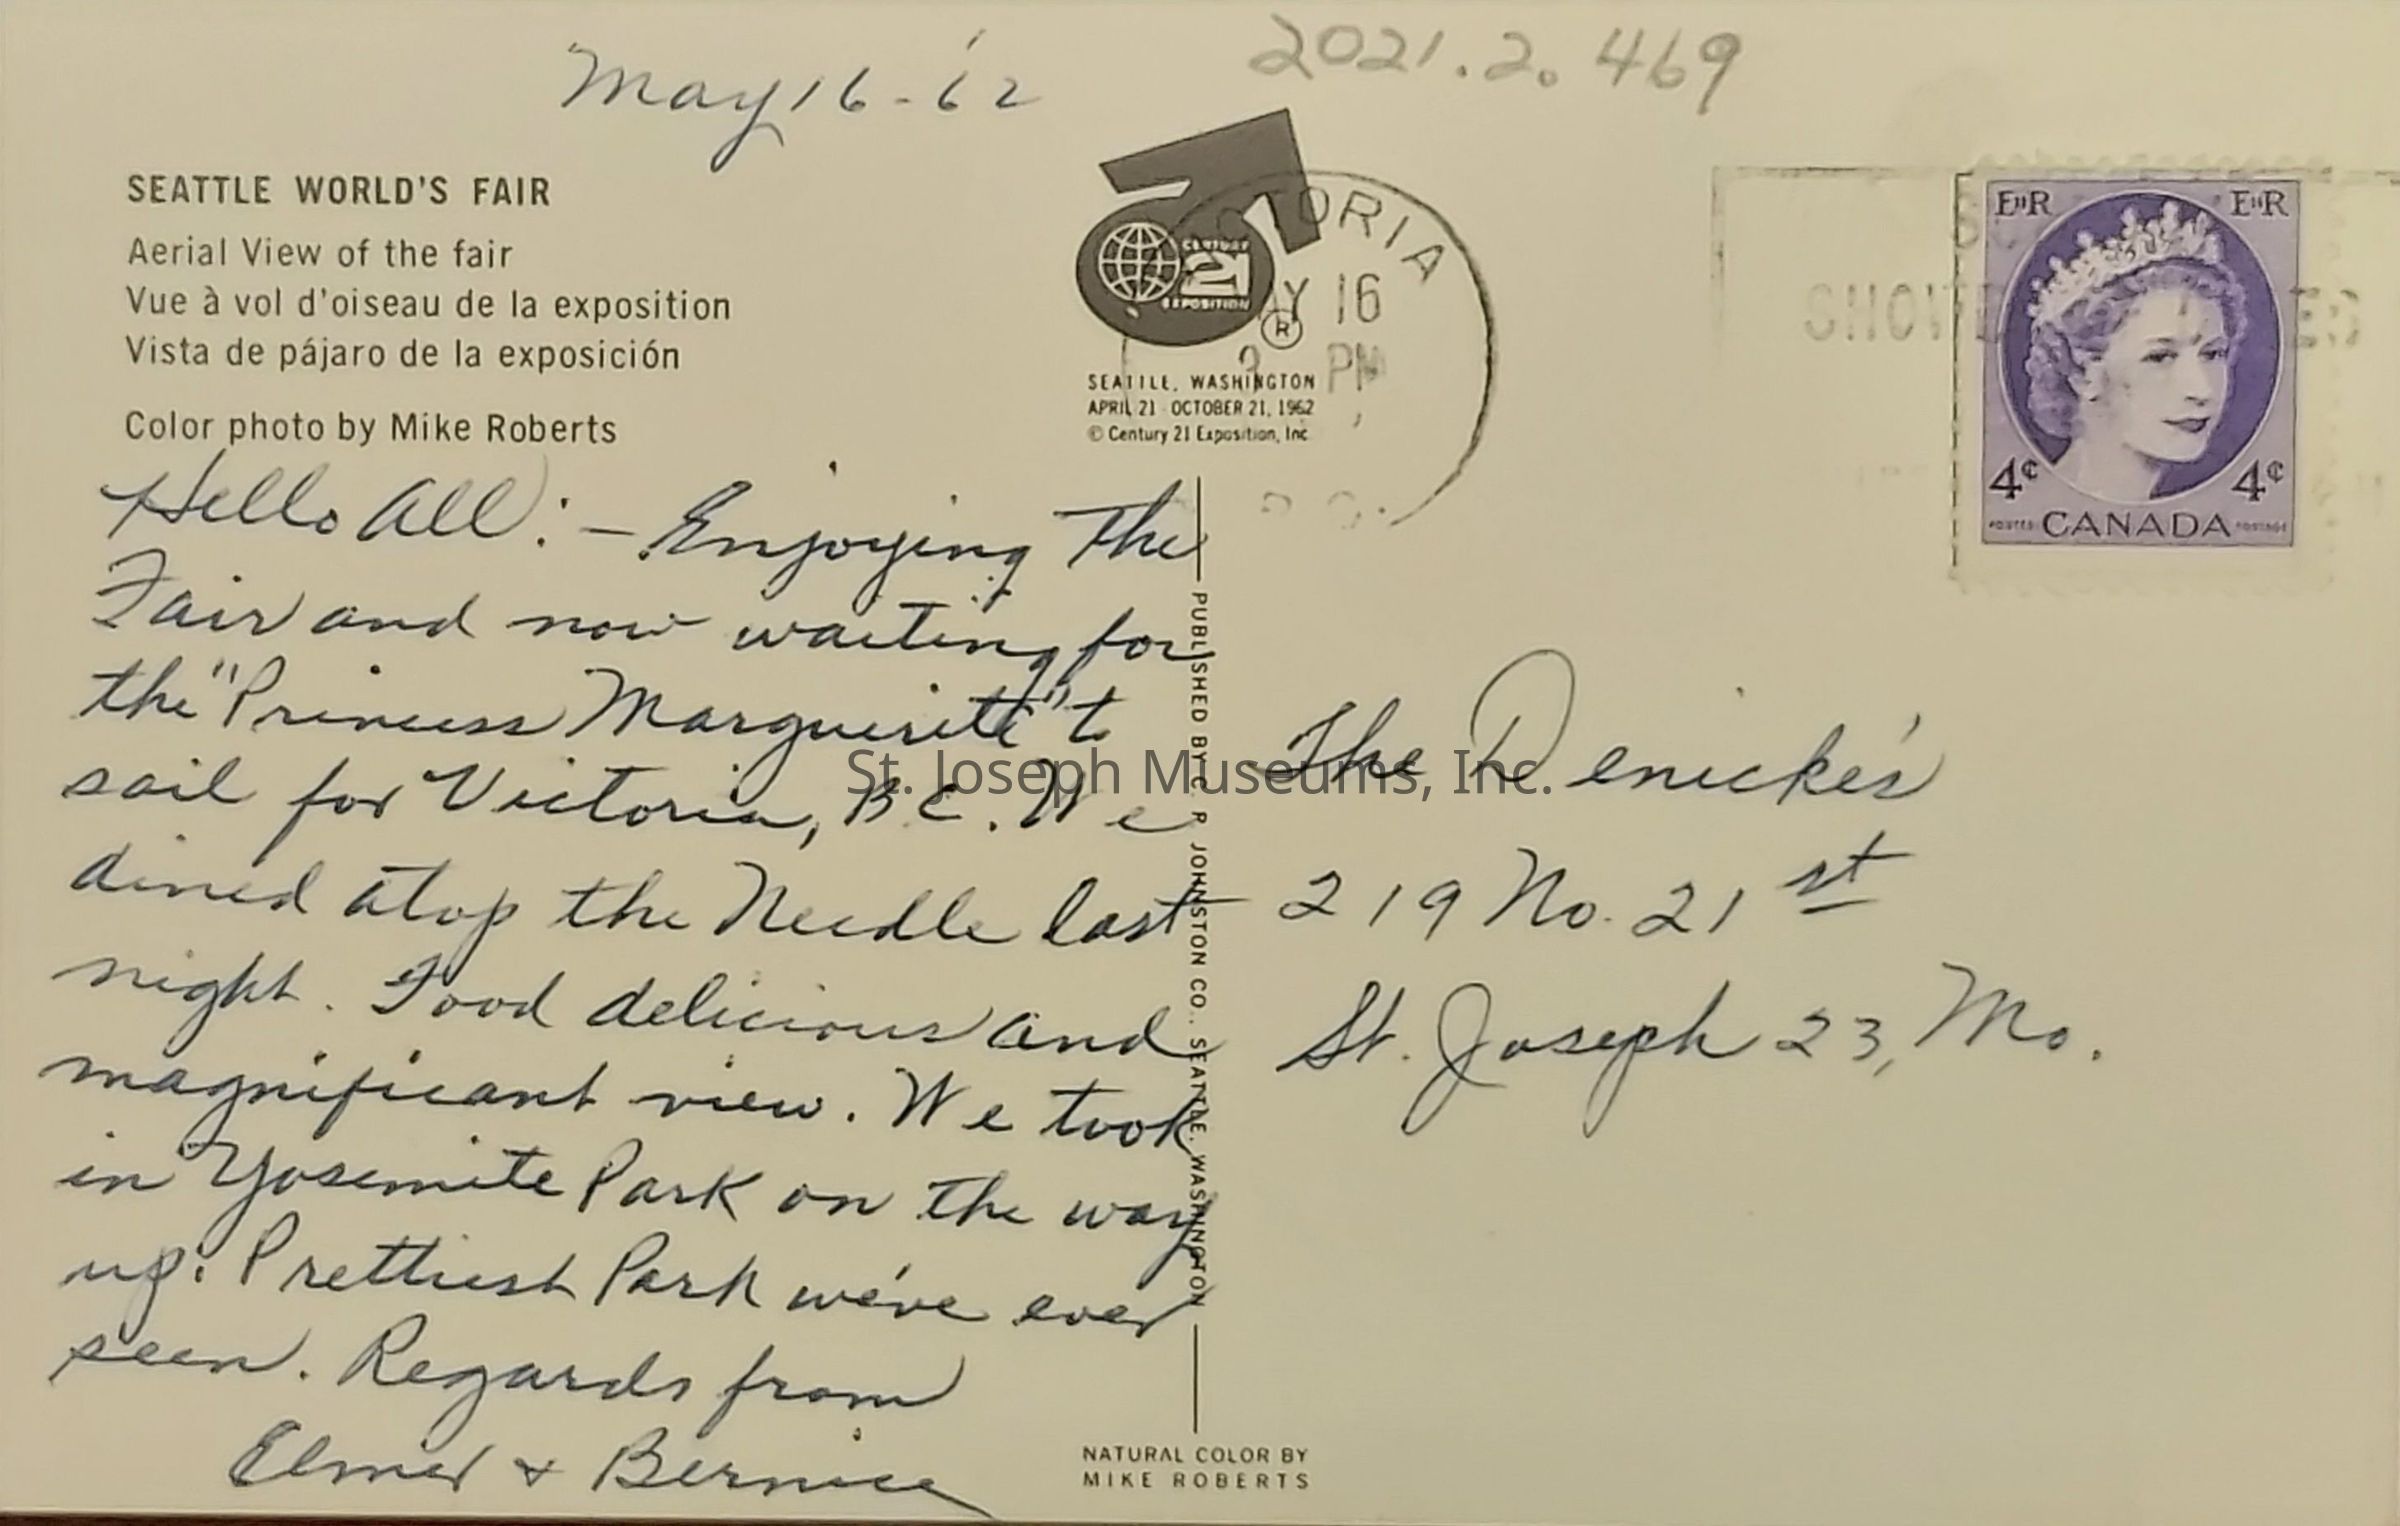 May 16-'62
2021.2.469
SEATTLE WORLD'S FAIR
Aerial View of the fair
Vue à vol d'oiseau de la exposition
Vista de pájaro de la exposición
Color photo by Mike Roberts
CENTURY
21
EXPOSITION
®
SEATTLE, WASHINGTON
APRIL 21 - OCTOBER 21, 1962
© Century 21 Exposition, Inc.
MAY 16
PM
EIIR EIIR
4¢ 4¢
POSTES CANADA POSTAGE
Hello All:- Enjoying The
Fair and now waiting for
the "Princess Marguerite" to
sail for Victoria, B.C. We
dined atop the Needle last
night. Food delicious and
magnificant view. We took
in Yosemite Park on the way
up. Prettiest Park we've ever
seen. Regards from
Elmer + Bernice
PUBLISHED BY C. R. JOHNSTON CO., SEATTLE, WASHINGTON
The Denicke's
219 No. 21st
St. Joseph 23, Mo.
St. Joseph Museums, Inc.
NATURAL COLOR BY
MIKE ROBERTS